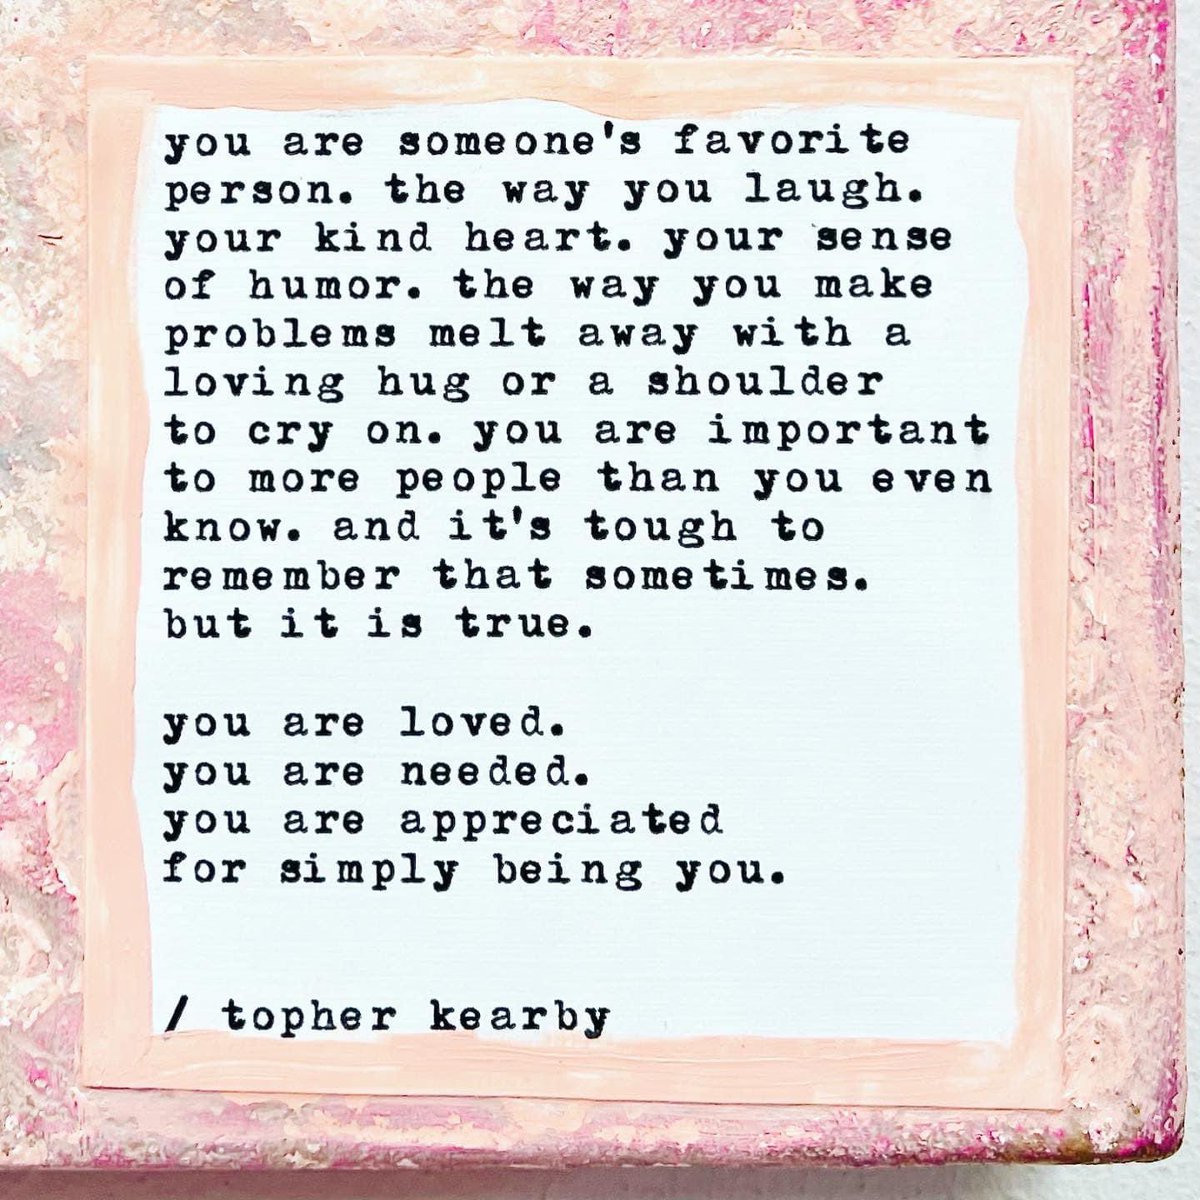 you are someone's favorite
person. the way you laugh.
your kind heart. your sense
of humor. the way you make
problems melt away with a
loving hug or a shoulder
to cry on. you are important
to more people than you even
know. and it's tough to
remember that sometimes.
but it is true.
you are loved.
you are needed.
you are appreciated
for simply being you.
/ topher kearby